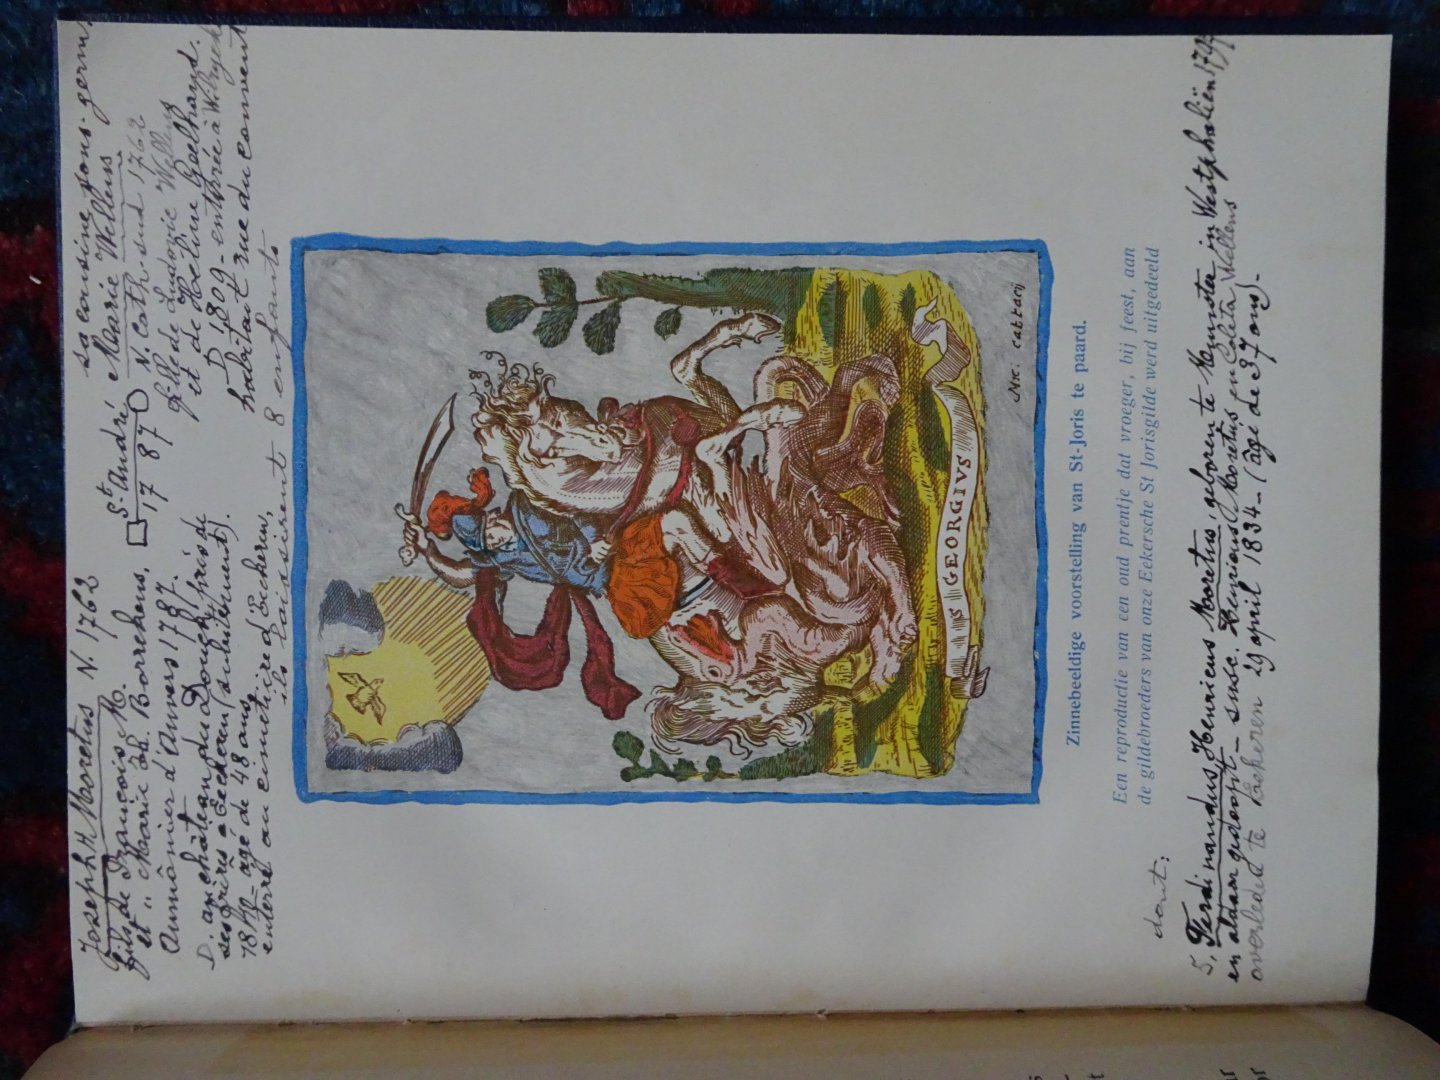 Joseph H Moretus N. 1762
fils de François M.
et " Marie Is. Borrekens,
Aumônier d'Anvers 1787.
D. au château du Dougny près de
ses frères à Eeckeren (subitement).
18 âgé de 48 ans,
enterré au cimetière d'Eeckeren,
ils laissèrent 8 enfants
sa cousine sous-germ.
St. André Marie Wellens
1787 N. Cath. sud 1762
fille de Ludovic Wellens
et de Hélène Geelhand.
D. 1809 - enterrée à Wilryck
habitant rue du couvent
S GEORGIVS
Nic. Cattarij
Zinnebeeldige voorstelling van St-Joris te paard.
Een reproductie van een oud prentje dat vroeger, bij feest, aan
de gildebroeders van onze Eekersche St Jorisgilde werd uitgedeeld
dont:
5, Ferdinandus, Henricus Moretus, geboren te Munster in Westphaliën 1797
en aldaar gedoopt - susc. Moretus en Wellens
overleden te Eekeren 29 april 1834 - (âge de 37 ans).